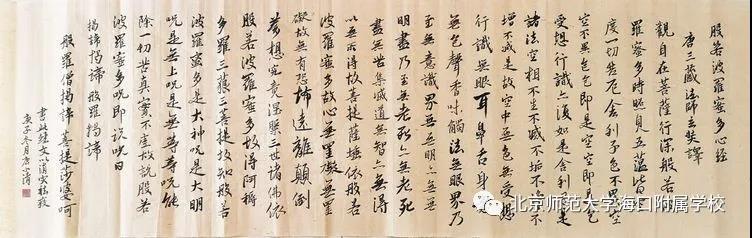 般若波羅蜜多心經
唐三藏法師玄奘譯
觀自在菩薩行深般若波
羅蜜多時照見五蘊皆空
度一切苦厄舍利子色不異
空空不異色色即是空空即是色
受想行識亦復如是舍利子是
諸法空相不生不滅不垢不淨不
增不減是故空中無色無受想
行識無眼耳鼻舌身意
無色聲香味觸法無眼界乃
至無意識界無無明亦無無
明盡乃至無老死亦無老死
盡無苦集滅道無智亦無得
以無所得故菩提薩埵依般若
波羅蜜多故心無罣礙無罣
礙故無有恐怖遠離顛倒
夢想究竟涅槃三世諸佛依
般若波羅蜜多故得阿耨
多羅三藐三菩提故知般若
波羅蜜多是大神呪是大明
呪是無上呪是無等等呪能
除一切苦真實不虛故說般若
波羅蜜多呪即說呪曰
揭諦揭諦 般羅揭諦
般羅僧揭諦 菩提莎婆呵
書此經文以消灾祛疫
庚子冬月唐
北京师范大学海口附属学校